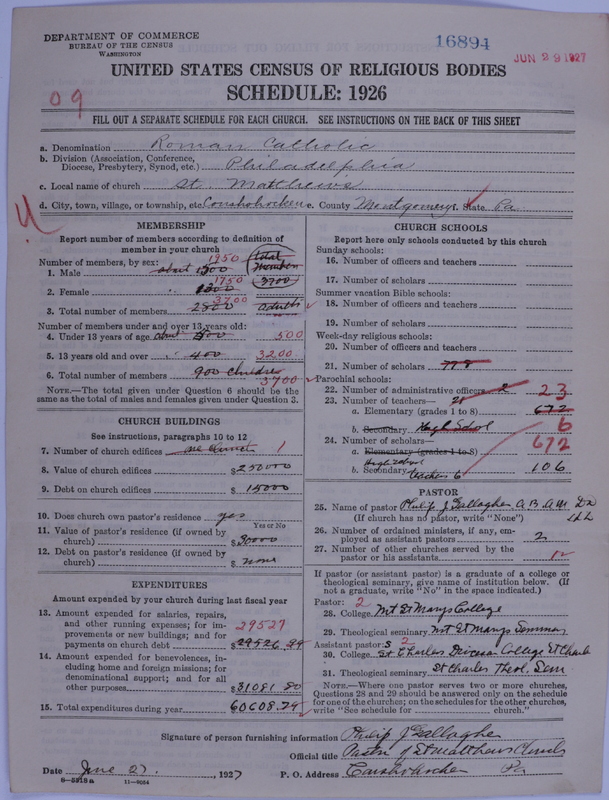 DEPARTMENT OF COMMERCE
BUREAU OF THE CENSUS
WASHINGTON
16894
JUN 29 1927
UNITED STATES CENSUS OF RELIGIOUS BODIES
SCHEDULE: 1926
09
FILL OUT A SEPARATE SCHEDULE FOR EACH CHURCH. SEE INSTRUCTIONS ON THE BACK OF THIS SHEET
a. Denomination Roman Catholic
b. Division (Association, Conference,
Diocese, Presbytery, Synod, etc.) Philadelphia
c. Local name of church St. Matthews
d. City, town, village, or township, etc. Conshohocken e. County Montgomery f. State Pa.
MEMBERSHIP
Report number of members according to definition of
member in your church
Number of members, by sex: 1950 total
1. Male about 1500 members
1750 3700
2. Female " 1300
3700
3. Total number of members 2800 adults
Number of members under and over 13 years old:
4. Under 13 years of age about 500 500
5. 13 years old and over " 400 3200
6. Total number of members 900 children
3700
NOTE.—The total given under Question 6 should be the
same as the total of males and females given under Question 3.
CHURCH BUILDINGS
See instructions, paragraphs 10 to 12
7. Number of church edifices one church 1
8. Value of church edifices $250000
9. Debt on church edifices $15000
10. Does church own pastor's residence yes
Yes or No
11. Value of pastor's residence (if owned by
church) $30000
12. Debt on pastor's residence (if owned by
church) $none
EXPENDITURES
Amount expended by your church during last fiscal year
13. Amount expended for salaries, repairs,
and other running expenses; for im-
provements or new buildings; and for
payments on church debt 29527 $29526.99
14. Amount expended for benevolences, in-
cluding home and foreign missions; for
denominational support; and for all
other purposes $31081.80
15. Total expenditures during year 60608.79
CHURCH SCHOOLS
Report here only schools conducted by this church
Sunday schools:
16. Number of officers and teachers
17. Number of scholars
Summer vacation Bible schools:
18. Number of officers and teachers
19. Number of scholars
Week-day religious schools:
20. Number of officers and teachers
21. Number of scholars 778
Parochial schools:
22. Number of administrative officers 2 23
23. Number of teachers—
a. Elementary (grades 1 to 8) 672
b. Secondary High School 6
24. Number of scholars— 672
a. Elementary (grades 1 to 8)
High school
b. Secondary teachers 6 106
PASTOR
25. Name of pastor Philip J Gallagher A.B. A.M.
(If church has no pastor, write "None")
26. Number of ordained ministers, if any, em-
ployed as assistant pastors 2
27. Number of other churches served by the
pastor or his assistants
If pastor (or assistant pastor) is a graduate of a college or
theological seminary, give name of institution below. (If
not a graduate, write "No" in the space indicated.)
Pastor: 2
28. College Mt St Marys College
29. Theological seminary Mt St Marys Seminary
Assistant pastor: S 2
30. College St Charles College St Charles
31. Theological seminary St Charles Theol. Sem
NOTE.—Where one pastor serves two or more churches,
Questions 28 and 29 should be answered only on the schedule
for one of the churches; on the schedules for the other churches,
write "See schedule for church."
Signature of person furnishing information Philip J Gallagher
Official title Pastor of St Matthews Church
Date June 27, 1927 P. O. Address Conshohocken Pa
6—5318a 11—9064